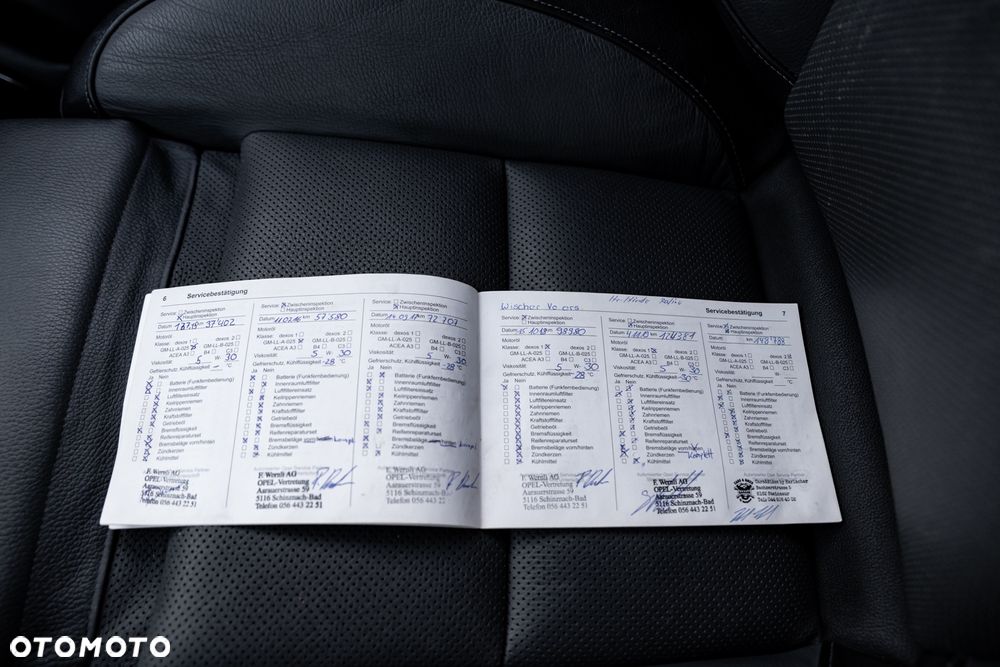 6 Servicebestätigung
Service: Zwischeninspektion
Hauptinspektion
Datum km 37402
Motoröl
Klasse: dexos 1 dexos 2
GM-LL-A-025 GM-LL-B-025
ACEA A3 B4 C3
Viskosität: 5 W- 30
Gefrierschutz, Kühlflüssigkeit °C
Ja Nein
Batterie (Funkfernbedienung)
Innenraumluftfilter
Luftfiltereinsatz
Keilrippenriemen
Zahnriemen
Kraftstofffilter
Getriebeöl
Bremsflüssigkeit
Reifenreparaturset
Bremsbeläge vorn/hinten
Zündkerzen
Kühlmittel
F. Wernli AG
OPEL-Vertretung
Aarauerstrasse 59
5116 Schinznach-Bad
Telefon 056 443 22 51
Service: Zwischeninspektion
Hauptinspektion
Datum km 57580
Motoröl
Klasse: dexos 1 dexos 2
GM-LL-A-025 GM-LL-B-025
ACEA A3 B4 C3
Viskosität: 5 W- 30
Gefrierschutz, Kühlflüssigkeit -28 °C
Ja Nein
Batterie (Funkfernbedienung)
Innenraumluftfilter
Luftfiltereinsatz
Keilrippenriemen
Zahnriemen
Kraftstofffilter
Getriebeöl
Bremsflüssigkeit
Reifenreparaturset
Bremsbeläge
Zündkerzen
Kühlmittel
F. Wernli AG
OPEL-Vertretung
Aarauerstrasse 59
5116 Schinznach-Bad
Telefon 056 443 22 51
Service: Zwischeninspektion
Hauptinspektion
Datum km 72707
Motoröl
Klasse: dexos 1 dexos 2
GM-LL-A-025 GM-LL-B-025
ACEA A3 B4 C3
Viskosität: 5 W- 30
Gefrierschutz, Kühlflüssigkeit -28 °C
Ja Nein
Batterie (Funkfernbedienung)
Innenraumluftfilter
Luftfiltereinsatz
Keilrippenriemen
Zahnriemen
Kraftstofffilter
Getriebeöl
Bremsflüssigkeit
Reifenreparaturset
Bremsbeläge
Zündkerzen
Kühlmittel
F. Wernli AG
OPEL-Vertretung
Aarauerstrasse 59
5116 Schinznach-Bad
Telefon 056 443 22 51
Wischer
Servicebestätigung 7
Service: Zwischeninspektion
Hauptinspektion
Datum 15.10.19 km 98980
Motoröl
Klasse: dexos 1 dexos 2
GM-LL-A-025 GM-LL-B-025
ACEA A3 B4 C3
Viskosität: 5 W- 30
Gefrierschutz, Kühlflüssigkeit -28 °C
Ja Nein
Batterie (Funkfernbedienung)
Innenraumluftfilter
Luftfiltereinsatz
Keilrippenriemen
Zahnriemen
Kraftstofffilter
Getriebeöl
Bremsflüssigkeit
Reifenreparaturset
Bremsbeläge vorn/hinten
Zündkerzen
Kühlmittel
F. Wernli AG
OPEL-Vertretung
Aarauerstrasse 59
5116 Schinznach-Bad
Telefon 056 443 22 51
Service: Zwischeninspektion
Hauptinspektion
Datum km
Motoröl
Klasse: dexos 1 dexos 2
GM-LL-A-025 GM-LL-B-025
ACEA A3 B4 C3
Viskosität: 5 W- 30
Gefrierschutz, Kühlflüssigkeit -30 °C
Ja Nein
Batterie (Funkfernbedienung)
Innenraumluftfilter
Luftfiltereinsatz
Keilrippenriemen
Zahnriemen
Kraftstofffilter
Getriebeöl
Bremsflüssigkeit
Reifenreparaturset
Bremsbeläge vorn/hinten
Komplett
Zündkerzen
Kühlmittel
F. Wernli AG
OPEL-Vertretung
Aarauerstrasse 59
5116 Schinznach-Bad
Telefon 056 443 22 51
Service: Zwischeninspektion
Hauptinspektion
Datum km 148988
Motoröl
Klasse: dexos 1 dexos 2
GM-LL-A-025 GM-LL-B-025
ACEA A3 B4 C3
Viskosität: W-
Gefrierschutz, Kühlflüssigkeit °C
Ja Nein
Batterie (Funkfernbedienung)
Innenraumluftfilter
Luftfiltereinsatz
Keilrippenriemen
Zahnriemen
Kraftstofffilter
Getriebeöl
Bremsflüssigkeit
Reifenreparaturset
Bremsbeläge vorn/hinten
Zündkerzen
Kühlmittel
OTOMOTO